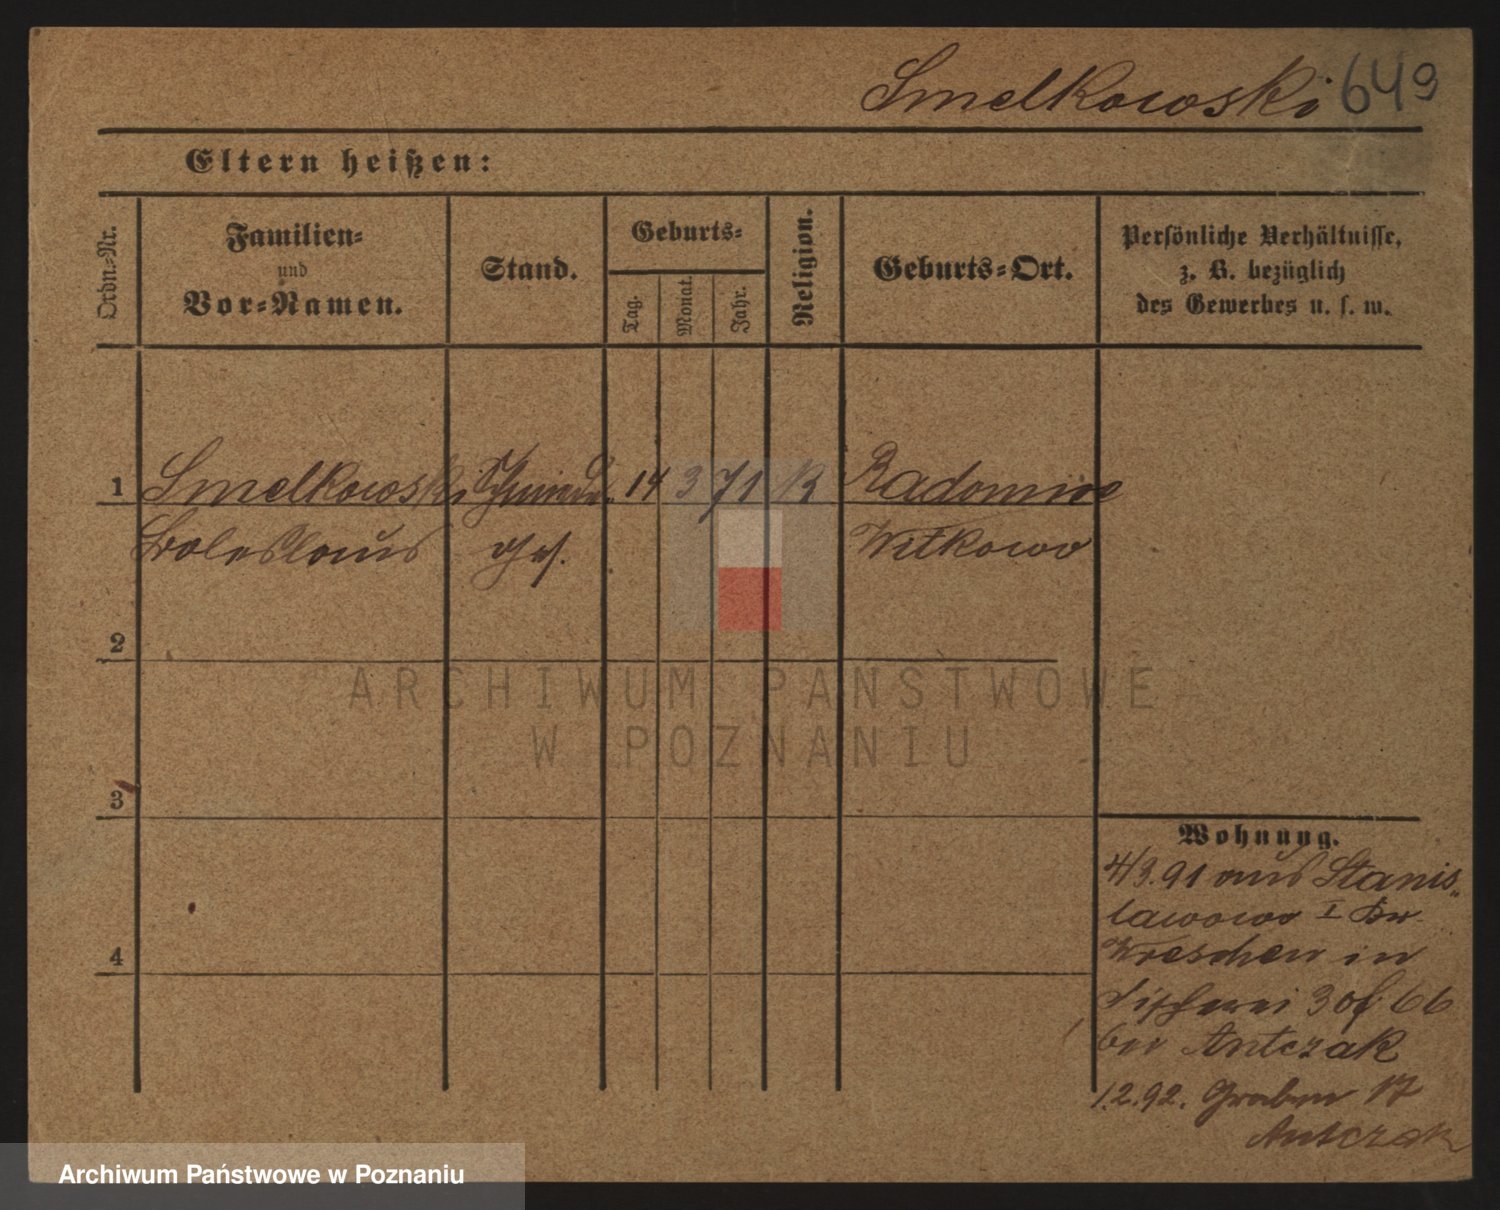 Smelkowski 649
Eltern heißen:
Ordn.-Nr.
Familien-
und
Vor-Namen.
Stand.
Geburts-
Tag.
Monat.
Jahr.
Religion.
Geburts-Ort.
Persönliche Verhältnisse,
z. B. bezüglich
des Gewerbes u. s. w.
1 Smelkowski Schmiede- 14 3 71 K
Boleslaus Ges. Witkowo
2
3
4
Wohnung.
4/3.91 aus Stanis-
lawowo I Kr.
Wreschen in
Fischerei 3
bei Antczak
1.2.92. Graben 17
Antczak
ARCHIWUM PAŃSTWOWE
W POZNANIU
Archiwum Państwowe w Poznaniu